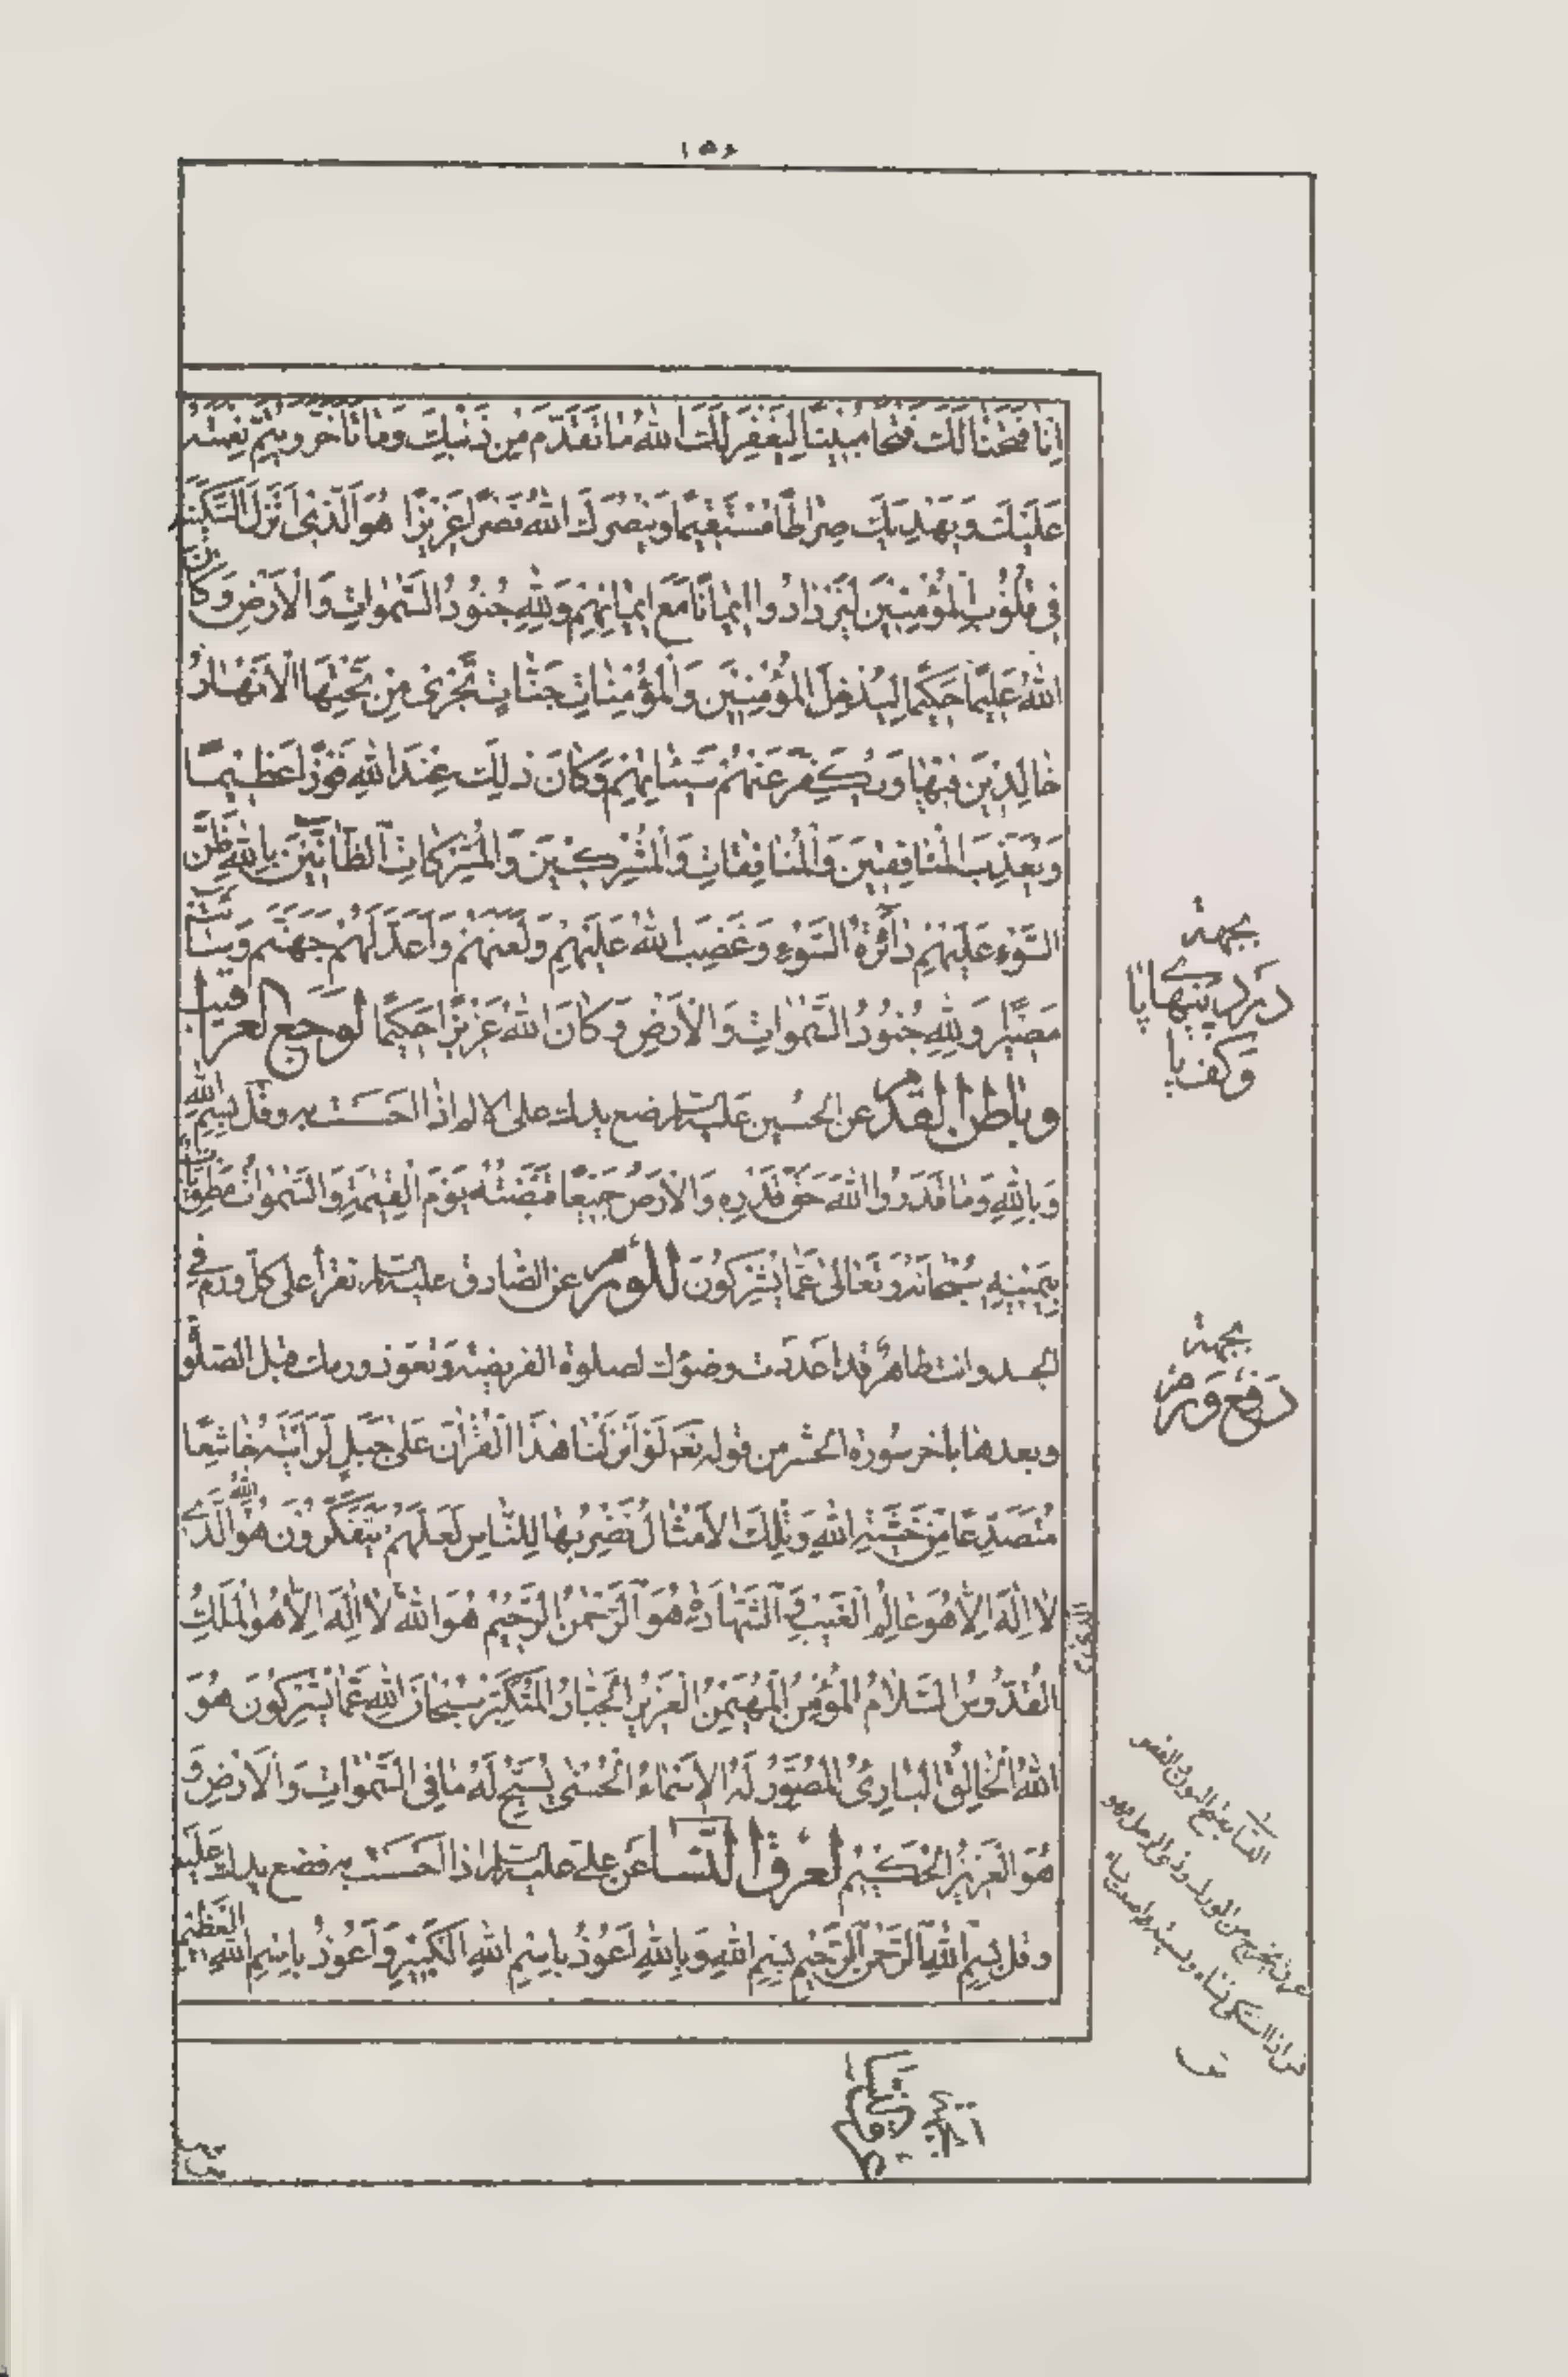 ۱۵۶
اِنّا فَتَحْنا لَكَ فَتْحًا مُبينًا لِيَغْفِرَ لَكَ اللهُ ما تَقَدَّمَ مِنْ ذَنْبِكَ وَما تَاَخَّرَ وَيُتِمَّ نِعْمَتَهُ
عَلَيْكَ وَيَهْدِيَكَ صِراطًا مُسْتَقيمًا وَيَنْصُرَكَ اللهُ نَصْرًا عَزيزًا هُوَ الَّذى اَنْزَلَ السَّكينَةَ
فى قُلُوبِ الْمُؤْمِنينَ لِيَزْدادُوا ايمانًا مَعَ ايمانِهِمْ وَلِلّهِ جُنُودُ السَّمواتِ وَالْاَرْضِ وَكانَ
اللهُ عَليمًا حَكيمًا لِيُدْخِلَ الْمُؤْمِنينَ وَالْمُؤْمِناتِ جَنّاتٍ تَجْرى مِنْ تَحْتِهَا الْاَنْهارُ
خالِدينَ فيها وَيُكَفِّرَ عَنْهُمْ سَيِّئاتِهِمْ وَكانَ ذلِكَ عِنْدَ اللهِ فَوْزًا عَظيمًا
وَيُعَذِّبَ الْمُنافِقينَ وَالْمُنافِقاتِ وَالْمُشْرِكينَ وَالْمُشْرِكاتِ الظّانّينَ بِاللهِ ظَنَّ
السَّوْءِ عَلَيْهِمْ دائِرَةُ السَّوْءِ وَغَضِبَ اللهُ عَلَيْهِمْ وَلَعَنَهُمْ وَاَعَدَّ لَهُمْ جَهَنَّمَ وَسائَتْ
مَصيرًا وَلِلّهِ جُنُودُ السَّمواتِ وَالْاَرْضِ وَكانَ اللهُ عَزيزًا حَكيمًا لوجع العراقيب
وباطن القدم عن الحُسين عَليه السلام ضع يدك على الالم اذا احسَست به وقل بِسْمِ اللهِ
وَبِاللهِ وَما قَدَرُوا اللهَ حَقَّ قَدْرِهِ وَالْاَرْضُ جَميعًا قَبْضَتُهُ يَوْمَ الْقِيمَةِ وَالسَّمواتُ مَطْوِيّاتٌ
بِيَمينِهِ سُبْحانَهُ وَتَعالى عَمّا يُشْرِكُونَ للورم عن الصّادق عليه السلام تقرأ على كلّ ورم في
الجسد وانت طاهر قد اعددت وضوئك لصلوة الفريضه وتعوذ ورمك قبل الصّلوة
وبعدها باخر سُورة الحشر من قوله تعَ لَوْ اَنْزَلْنا هذَا الْقُرْآنَ عَلى جَبَلٍ لَرَاَيْتَهُ خاشِعًا
مُتَصَدِّعًا مِنْ خَشْيَةِ اللهِ وَتِلْكَ الْاَمْثالُ نَضْرِبُها لِلنّاسِ لَعَلَّهُمْ يَتَفَكَّرُونَ هُوَ اللهُ الَّذى
لا اِلهَ اِلّا هُوَ عالِمُ الْغَيْبِ وَالشَّهادَةِ هُوَ الرَّحْمنُ الرَّحيمُ هُوَ اللهُ لا اِلهَ اِلّا هُوَ الْمَلِكُ
الْقُدُّوسُ السَّلامُ الْمُؤْمِنُ الْمُهَيْمِنُ الْعَزيزُ الْجَبّارُ الْمُتَكَبِّرُ سُبْحانَ اللهِ عَمّا يُشْرِكُونَ هُوَ
اللهُ الْخالِقُ الْبارِئُ الْمُصَوِّرُ لَهُ الْاَسْماءُ الْحُسْنى يُسَبِّحُ لَهُ ما فِى السَّمواتِ وَالْاَرْضِ وَ
هُوَ الْعَزيزُ الْحَكيمُ لعرق النّسا عَن علىّ عليه السلام اذا احسَست به فضع يدك عَليه
وقل بِسْمِ اللهِ الرَّحْمنِ الرَّحيمِ بِسْمِ اللهِ وَبِاللهِ اَعُوذُ بِاسْمِ اللهِ الْكَبيرِ وَاَعُوذُ بِاسْمِ اللهِ الْعَظيمِ
بجهة
درد پیهای پا
وکف پا
بجهة
دفع ورم
عرق يخرج من الورك